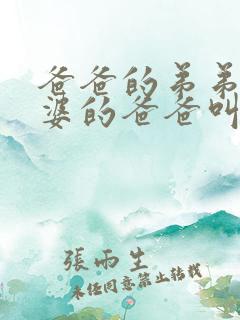 爸爸的弟弟
婆的爸爸叫
張雨生
未经同意禁止转载